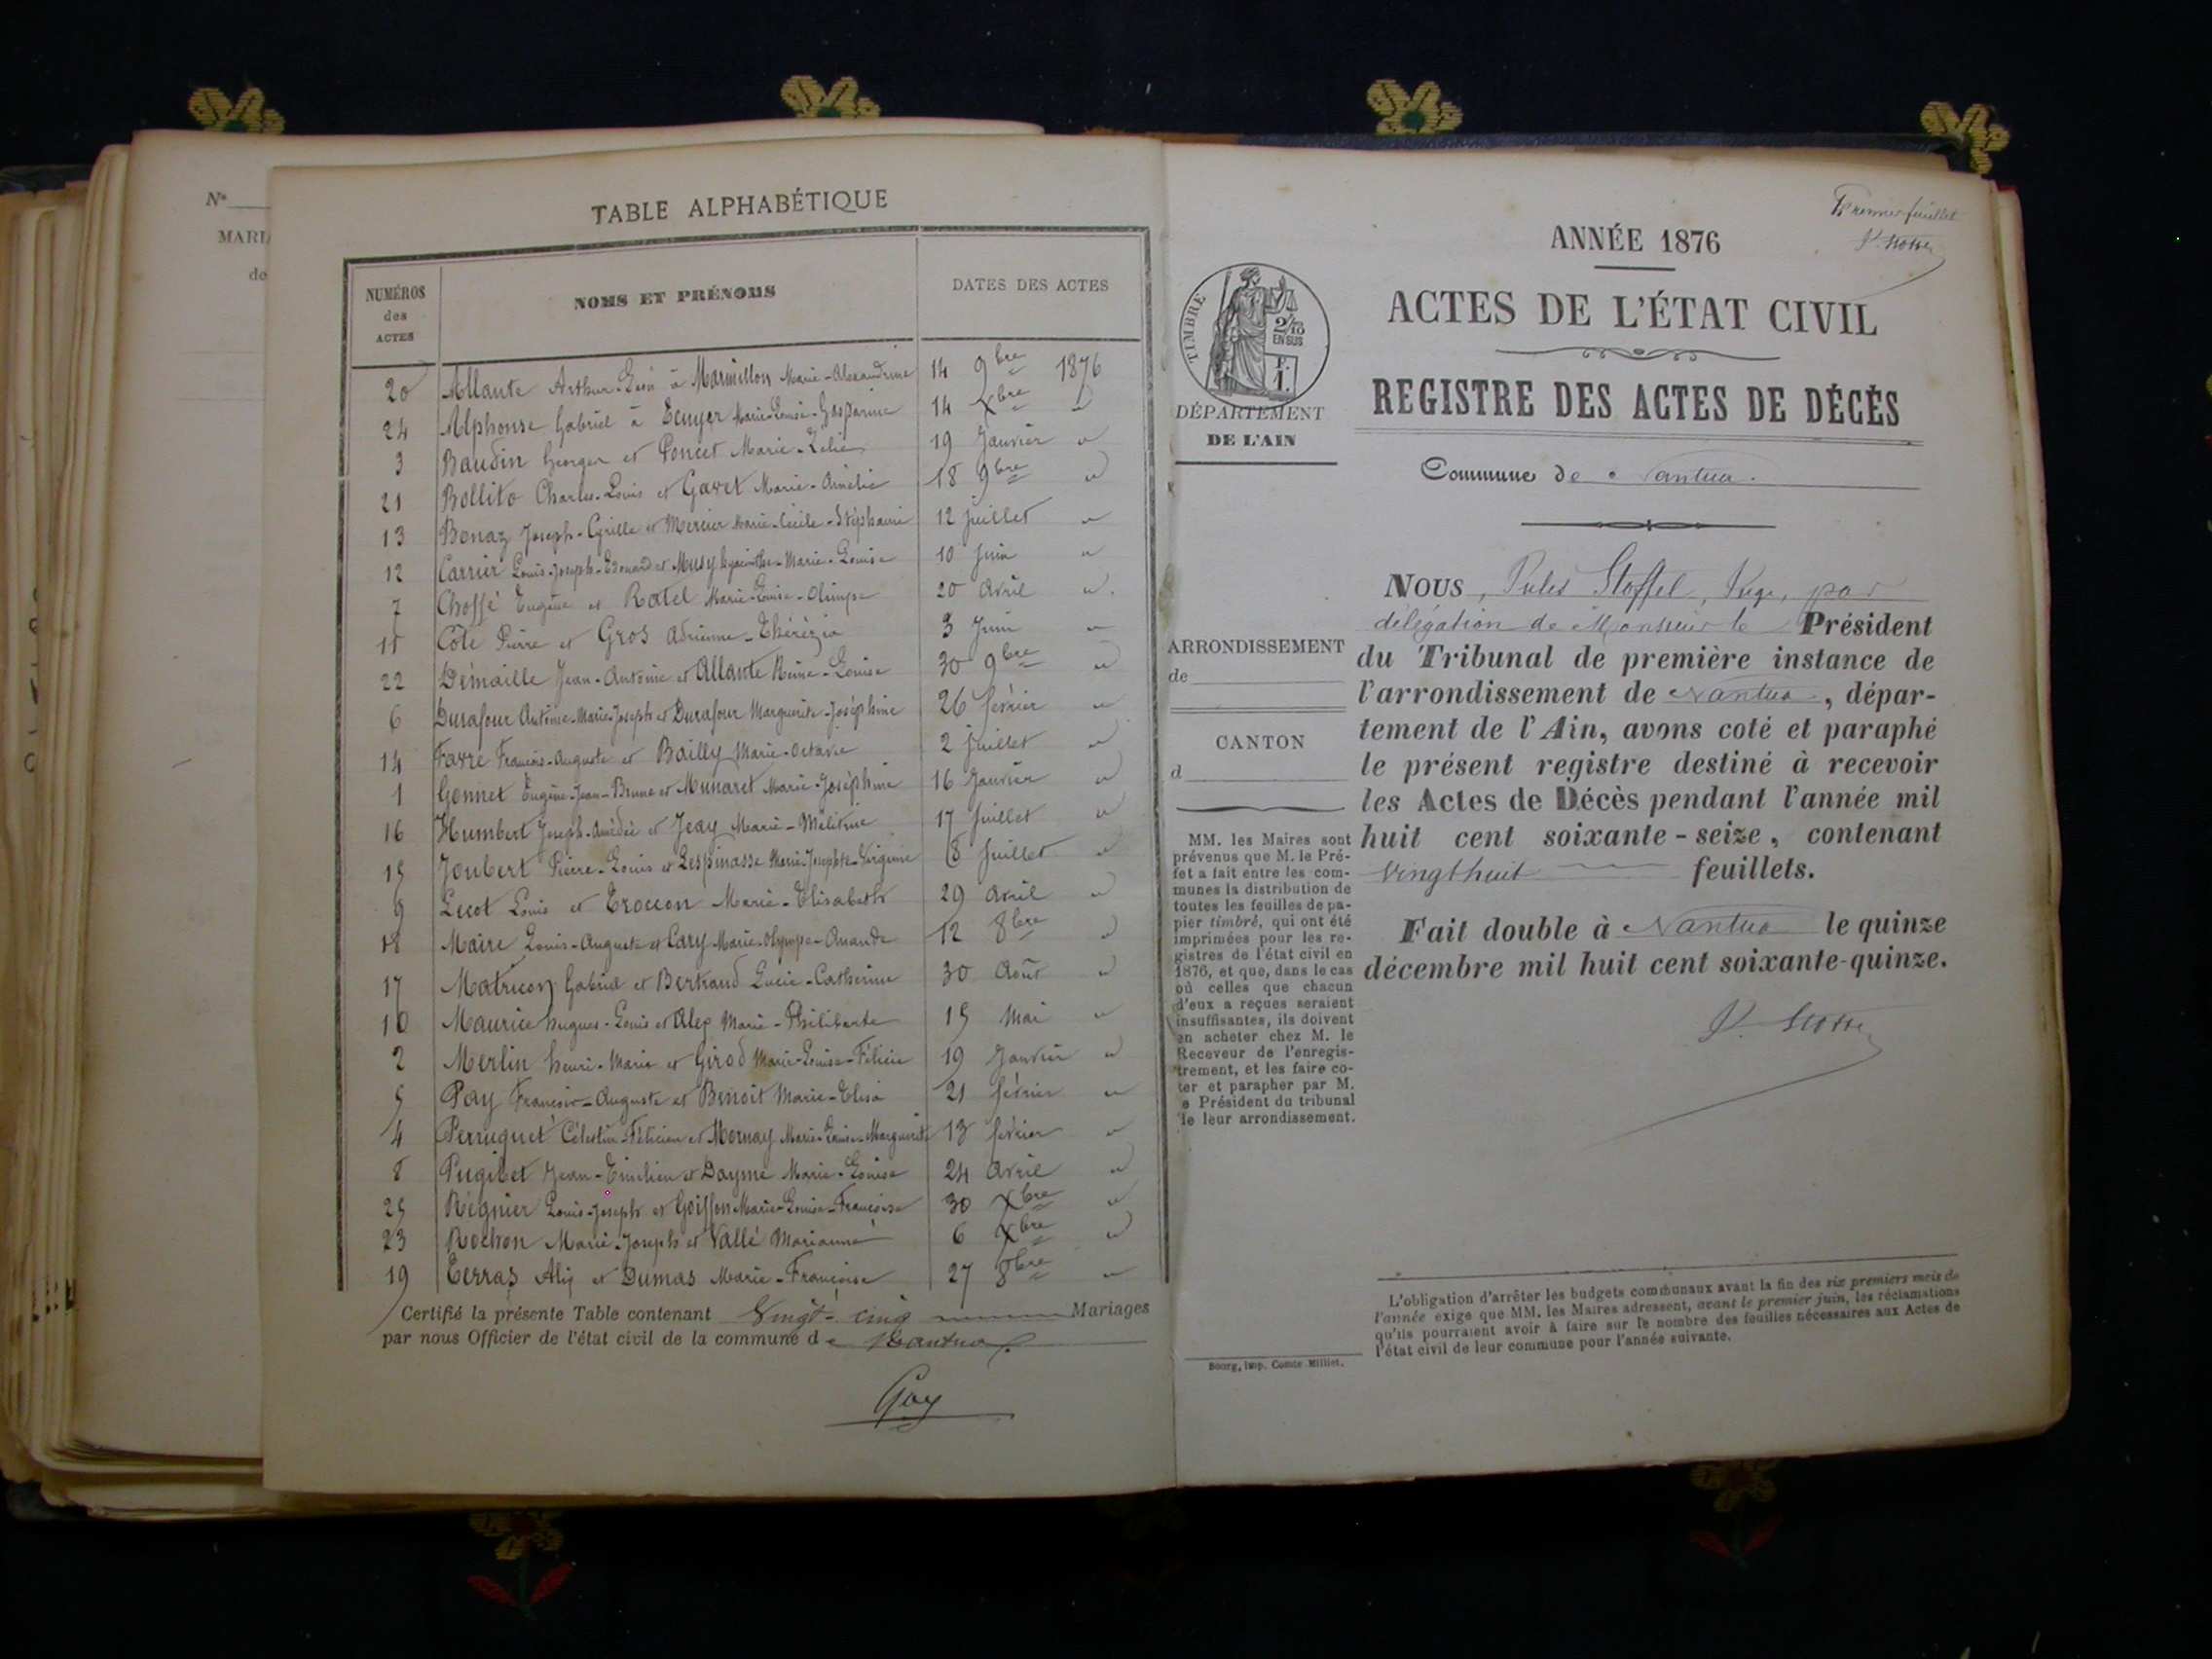 N°
MARI
de
TABLE ALPHABÉTIQUE
NUMÉROS des ACTES
NOMS ET PRÉNOMS
DATES DES ACTES
20 Allante Arthur à Marmillon Marie-Alexandrine 14 9bre 1876
24 Alphonse Gabriel à Ecuyer Marie-Louise-Gasparine 14 Xbre d
3 Baudin Georges et Poncet Marie-Zélie 19 Janvier d
21 Bollito Charles-Louis et Gavet Marie-Amélie 18 9bre d
13 Bonaz Joseph-Cyrille et Mercier Marie-Cécile-Stéphanie 12 juillet d
12 Carrier Louis-Joseph-Edouard et Musy hyacinthe-Marie-Louise 10 juin d
7 Choffé Eugène et Ratel Marie-Louise-Olimpe 20 avril d.
11 Côte Pierre et Gros Adrienne-Thérézia 3 Juin d
22 Démaille Jean-Antoine et Allante Reine-Louise 30 9bre d
6 Durafour Antoine-Marie-Joseph et Durafour Marguerite-Joséphine 26 février d
14 Favre François-Auguste et Bailly Marie-Octavie 2 juillet d
1 Gonnet Eugène-Jean-Bruno et Munaret Marie-Joséphine 16 Janvier d
16 Humbert Joseph-Amédée et Jeay Marie-Mélitine 17 juillet d
15 Joubert Pierre-Louis et Lespinasse Marie-Josephte-Virginie 8 juillet d
9 Lucot Louis et Troccon Marie-Elisabeth 29 avril d
18 Maire Louis-Auguste et Cary Marie-Olympe-Amanda 12 8bre d
17 Matricon Gabriel et Bertrand Lucie-Catherine 30 Août d
10 Maurice hugues-Louis et Alex Marie-Philiberte 15 Mai d
2 Merlin henri-Marie et Girod Marie-Louise-Félicie 19 Janvier d
5 Pay François-Auguste et Benoit Marie-Elisa 21 février d
4 Perruquet Célestin-Félicien et Mornay Marie-Louise-Marguerite 13 février d
8 Pugibet Jean-Emilien et Dayme Marie-Louise 24 avril d
25 Régnier Louis-Joseph et Goiffon Marie-Louise-Françoise 30 Xbre d
23 Rochon Marie-Joseph et Vallé Marianne 6 Xbre d
19 Terras Alix et Dumas Marie-Françoise 27 8bre d
Certifié la présente Table contenant Vingt-cinq Mariages
par nous Officier de l'état civil de la commune de Nantua.
Gay
Premier feuillet
ANNÉE 1876
ACTES DE L'ÉTAT CIVIL
REGISTRE DES ACTES DE DÉCÈS
TIMBRE
2/10 EN SUS
F. 1.
DÉPARTEMENT
DE L'AIN
Commune de Nantua.
ARRONDISSEMENT
de
CANTON
d
MM. les Maires sont
prévenus que M. le Pré-
fet a fait entre les com-
munes la distribution de
toutes les feuilles de pa-
pier timbré, qui ont été
imprimées pour les re-
gistres de l'état civil en
1876, et que, dans le cas
où celles que chacun
d'eux a reçues seraient
insuffisantes, ils doivent
en acheter chez M. le
Receveur de l'enregis-
trement, et les faire co-
ter et parapher par M.
e Président du tribunal
de leur arrondissement.
NOUS, Jules Stoffel, Juge, par
délégation de Monsieur le Président
du Tribunal de première instance de
l'arrondissement de Nantua, dépar-
tement de l'Ain, avons coté et paraphé
le présent registre destiné à recevoir
les Actes de Décès pendant l'année mil
huit cent soixante-seize, contenant
vingt huit feuillets.
Fait double à Nantua le quinze
décembre mil huit cent soixante-quinze.
L'obligation d'arrêter les budgets communaux avant la fin des six premiers mois de
l'année exige que MM. les Maires adressent, avant le premier juin, les réclamations
qu'ils pourraient avoir à faire sur le nombre des feuilles nécessaires aux Actes de
l'état civil de leur commune pour l'année suivante.
Bourg, imp. Comte Milliet.